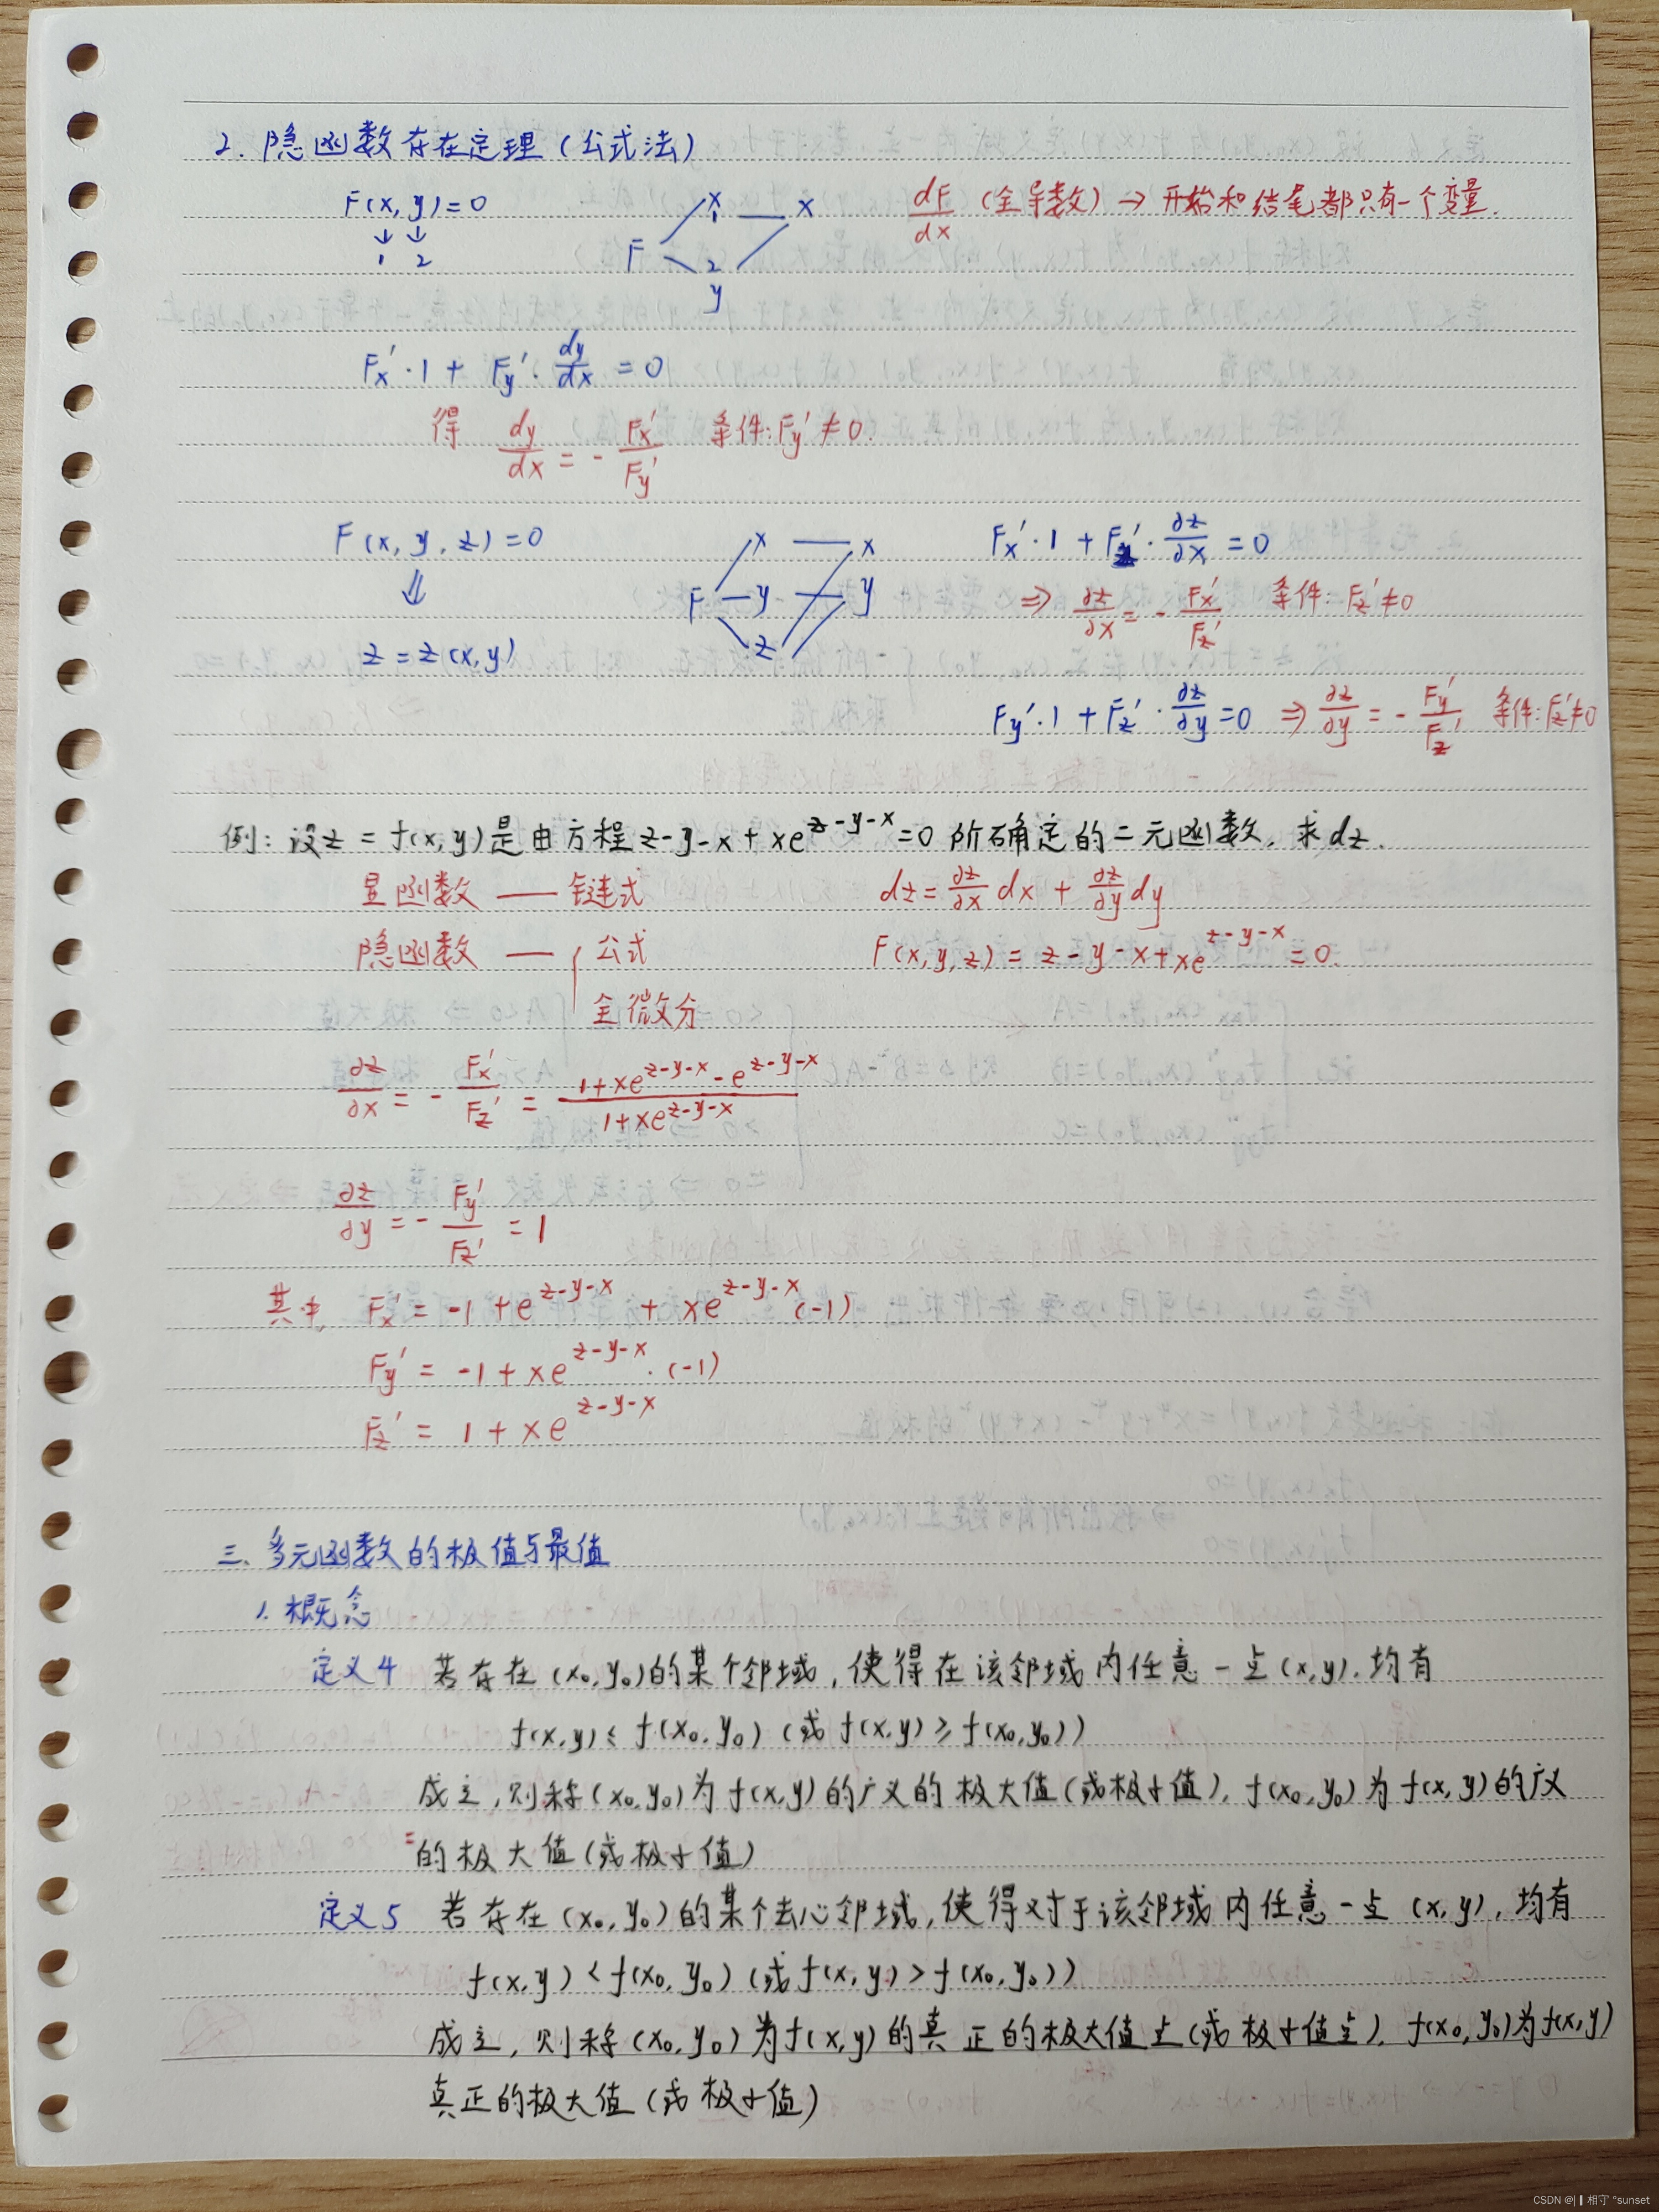 2. 隐函数存在定理（公式法）
F(x, y)=0
↓ ↓
1 2
F x 1 2 y x
dF/dx （全导数）→ 开始和结尾都只有一个变量.
Fx'·1 + Fy'·dy/dx = 0
得 dy/dx = - Fx'/Fy' 条件: Fy' ≠ 0.
F(x, y, z)=0
⇓
z = z(x, y)
F x y z x y
Fx'·1 + Fz'·∂z/∂x = 0
⇒ ∂z/∂x = - Fx'/Fz' 条件: Fz' ≠ 0
Fy'·1 + Fz'·∂z/∂y = 0 ⇒ ∂z/∂y = - Fy'/Fz' 条件: Fz' ≠ 0
例: 设z = f(x, y)是由方程z-y-x+xe^(z-y-x)=0 所确定的二元函数, 求dz.
显函数 —— 链式
隐函数 —— { 公式
全微分
dz = ∂z/∂x dx + ∂z/∂y dy
F(x, y, z) = z-y-x+xe^(z-y-x) = 0.
∂z/∂x = - Fx'/Fz' = (1+xe^(z-y-x) - e^(z-y-x))/(1+xe^(z-y-x))
∂z/∂y = - Fy'/Fz' = 1
其中, Fx' = -1 + e^(z-y-x) + xe^(z-y-x)(-1)
Fy' = -1 + xe^(z-y-x)·(-1)
Fz' = 1 + xe^(z-y-x)
三、多元函数的极值与最值
1. 概念
定义4 若存在(x₀, y₀)的某个邻域, 使得在该邻域内任意一点(x, y), 均有
f(x, y) ≤ f(x₀, y₀)（或 f(x, y) ≥ f(x₀, y₀)）
成立, 则称(x₀, y₀)为f(x, y)的广义的极大值(或极小值), f(x₀, y₀)为f(x, y)的广义
的极大值(或极小值)
定义5 若存在(x₀, y₀)的某个去心邻域, 使得对于该邻域内任意一点(x, y), 均有
f(x, y) < f(x₀, y₀)（或 f(x, y) > f(x₀, y₀)）
成立, 则称(x₀, y₀)为f(x, y)的真正的极大值点(或极小值点), f(x₀, y₀)为f(x, y)
真正的极大值(或极小值)
CSDN @|▍相守 °sunset